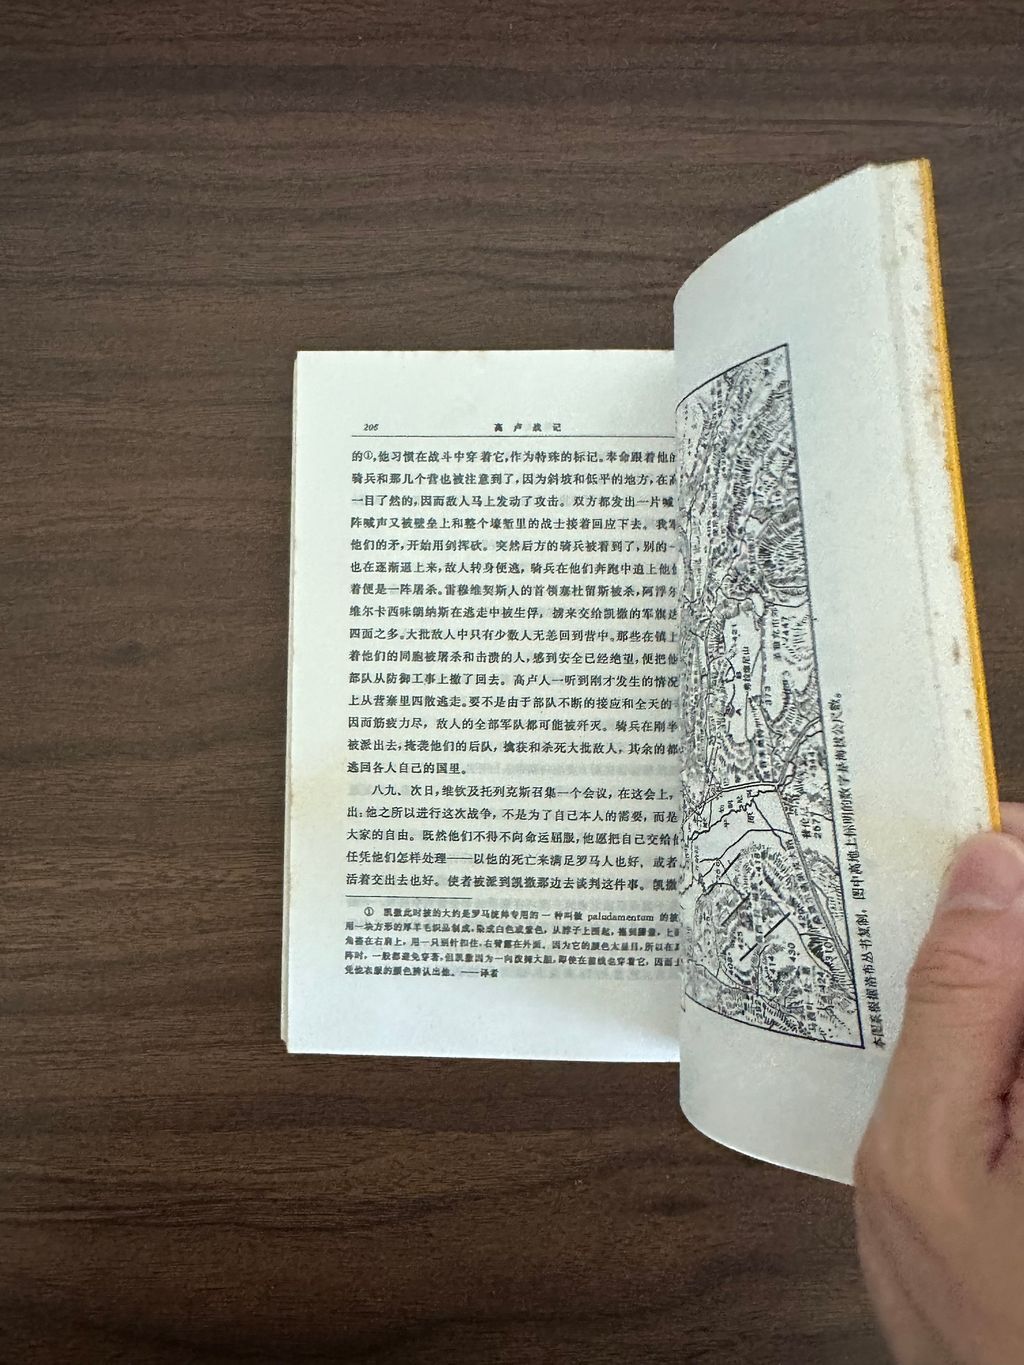 206
高卢战记
的①,他习惯在战斗中穿着它,作为特殊的标记。奉命跟着他的
骑兵和那几个营也被注意到了,因为斜坡和低平的地方,在高
一目了然的,因而敌人马上发动了攻击。双方都发出一片喊
阵喊声又被壁垒上和整个壕堑里的战士接着回应下去。我军
他们的矛,开始用剑挥砍。突然后方的骑兵被看到了,别的一
也在逐渐逼上来,敌人转身便逃,骑兵在他们奔跑中追上他们
着便是一阵屠杀。雷穆维契斯人的首领塞杜留斯被杀,阿浮尔
维尔卡西味朗纳斯在逃走中被生俘,掳来交给凯撒的军旗达
四面之多。大批敌人中只有少数人无恙回到营中。那些在镇上
着他们的同胞被屠杀和击溃的人,感到安全已经绝望,便把他
部队从防御工事上撤了回去。高卢人一听到刚才发生的情况
上从营寨里四散逃走。要不是由于部队不断的接应和全天的
因而筋疲力尽,敌人的全部军队都可能被歼灭。骑兵在刚半
被派出去,掩袭他们的后队,擒获和杀死大批敌人,其余的都
逃回各人自己的国里。
八九、次日,维钦及托列克斯召集一个会议,在这会上,
出:他之所以进行这次战争,不是为了自己本人的需要,而是
大家的自由。既然他们不得不向命运屈服,他愿把自己交给他
任凭他们怎样处理——以他的死亡来满足罗马人也好,或者
活着交出去也好。使者被派到凯撒那边去谈判这件事。凯撒
① 凯撒此时披的大约是罗马统帅专用的一种叫做 paludamentum 的披
用一块方形的厚羊毛织品制成,染成白色或紫色,从脖子上围起,拖到膝盖,上面
角搭在右肩上,用一只别针扣住,右臂露在外面。因为它的颜色太显目,所以在
阵时,一般都避免穿著,但凯撒因为一向泼辣大胆,即使在前线也穿着它,因而
凭他衣服的颜色辨认出他。——译者
421
弗拉维尼山
A
B
373
2447
平原
普伦
267
417
425
414
430
424
310
本图系根据洛布丛书复制。图中高地上标明的数字是海拔公尺数。